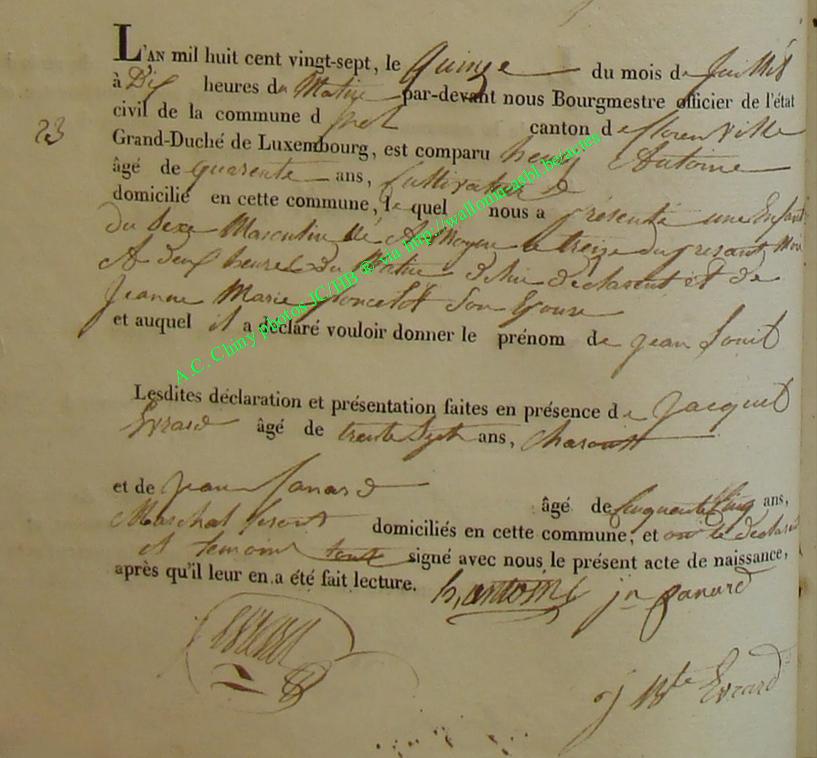 L'AN mil huit cent vingt-sept, le quinze du mois de Juillet
à Dix heures du Matin par-devant nous Bourgmestre officier de l'état
civil de la commune d canton de florenville
23
Grand-Duché de Luxembourg, est comparu henry Antoine
âgé de quarente ans, Cultivateur
domicilié en cette commune, le quel nous a présenté une Enfant
du Sexe Masculin né A le treize du présent Moi
A deux heures du Matin de lui déclarant et de
Jeanne Marie poncelet Son Epouse
et auquel il a déclaré vouloir donner le prénom de jean Louis
Lesdites déclaration et présentation faites en présence de Jacques
Evrard âgé de trente Sept ans, Charon
et de jean panard âgé de Cinquante Cinq ans,
Marchal ferant domiciliés en cette commune, et ont le déclarant
et temoins tous signé avec nous le présent acte de naissance,
après qu'il leur en a été fait lecture. h, antoine jn panard
j Bte Evrard
A.C. Chiny photos JC/HB ® via http://walloniaasbl.be/actes